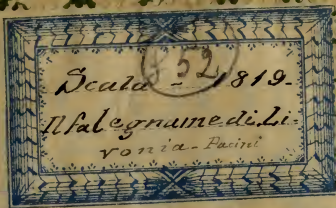 f 52
Scala - 1819.
Il falegname di Li-
vonia - Pacini